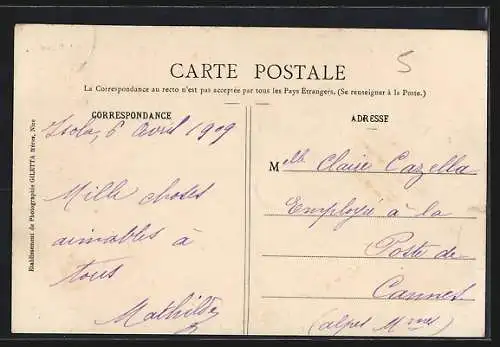 5
CARTE POSTALE
La Correspondance au recto n'est pas acceptée par tous les Pays Étrangers. (Se renseigner à la Poste.)
CORRESPONDANCE
Isola, 6 Avril 1909
Mille choses
aimables à
tous
Mathilde
ADRESSE
Mlle Claire Cazella
Employée à la
Poste de
Cannes
(Alpes Mmes)
Etablissement de Photographie GILETTA frères, Nice